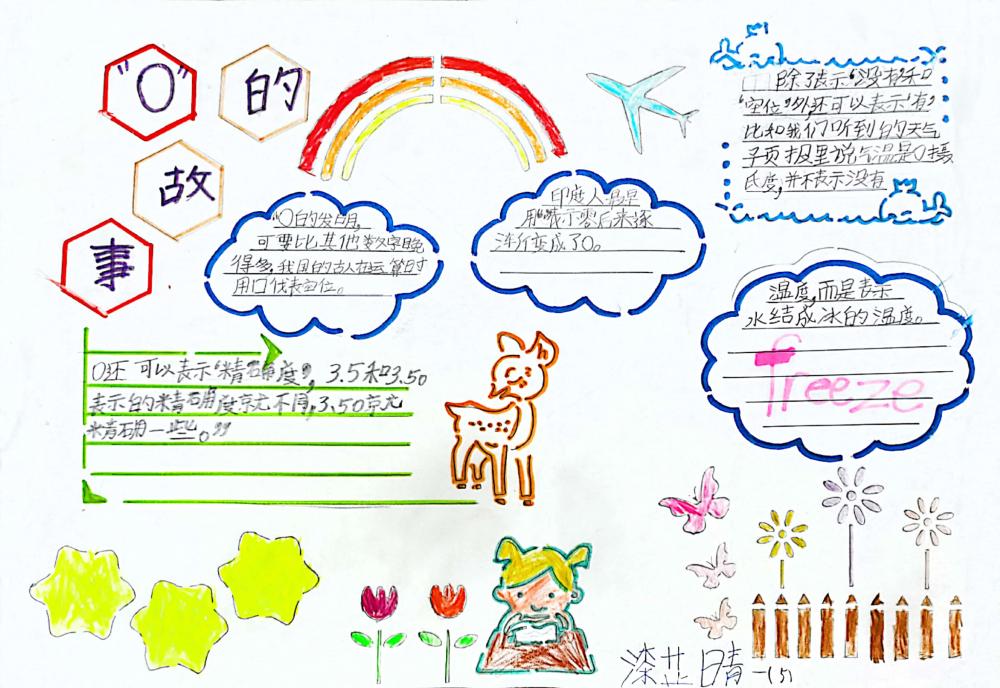 “0”的
故
事
“0的发明,
可要比其他数字晚
得多,我国的古人在运算时
用口代表空位。
印度人最早
用
示零后来逐
渐变成了0。
除了表示“没有和
“空位”外还可以表示“有”
比如我们听到的天气
予页报里说气温是0摄
氏度,并不表示没有
温度,而是表示
水结成冰的温度。
freeze
0还可以表示“精确度”,3.5和3.50
表示的精确度就不同,3.50就
精确一些。”
漆芷晴一(5)